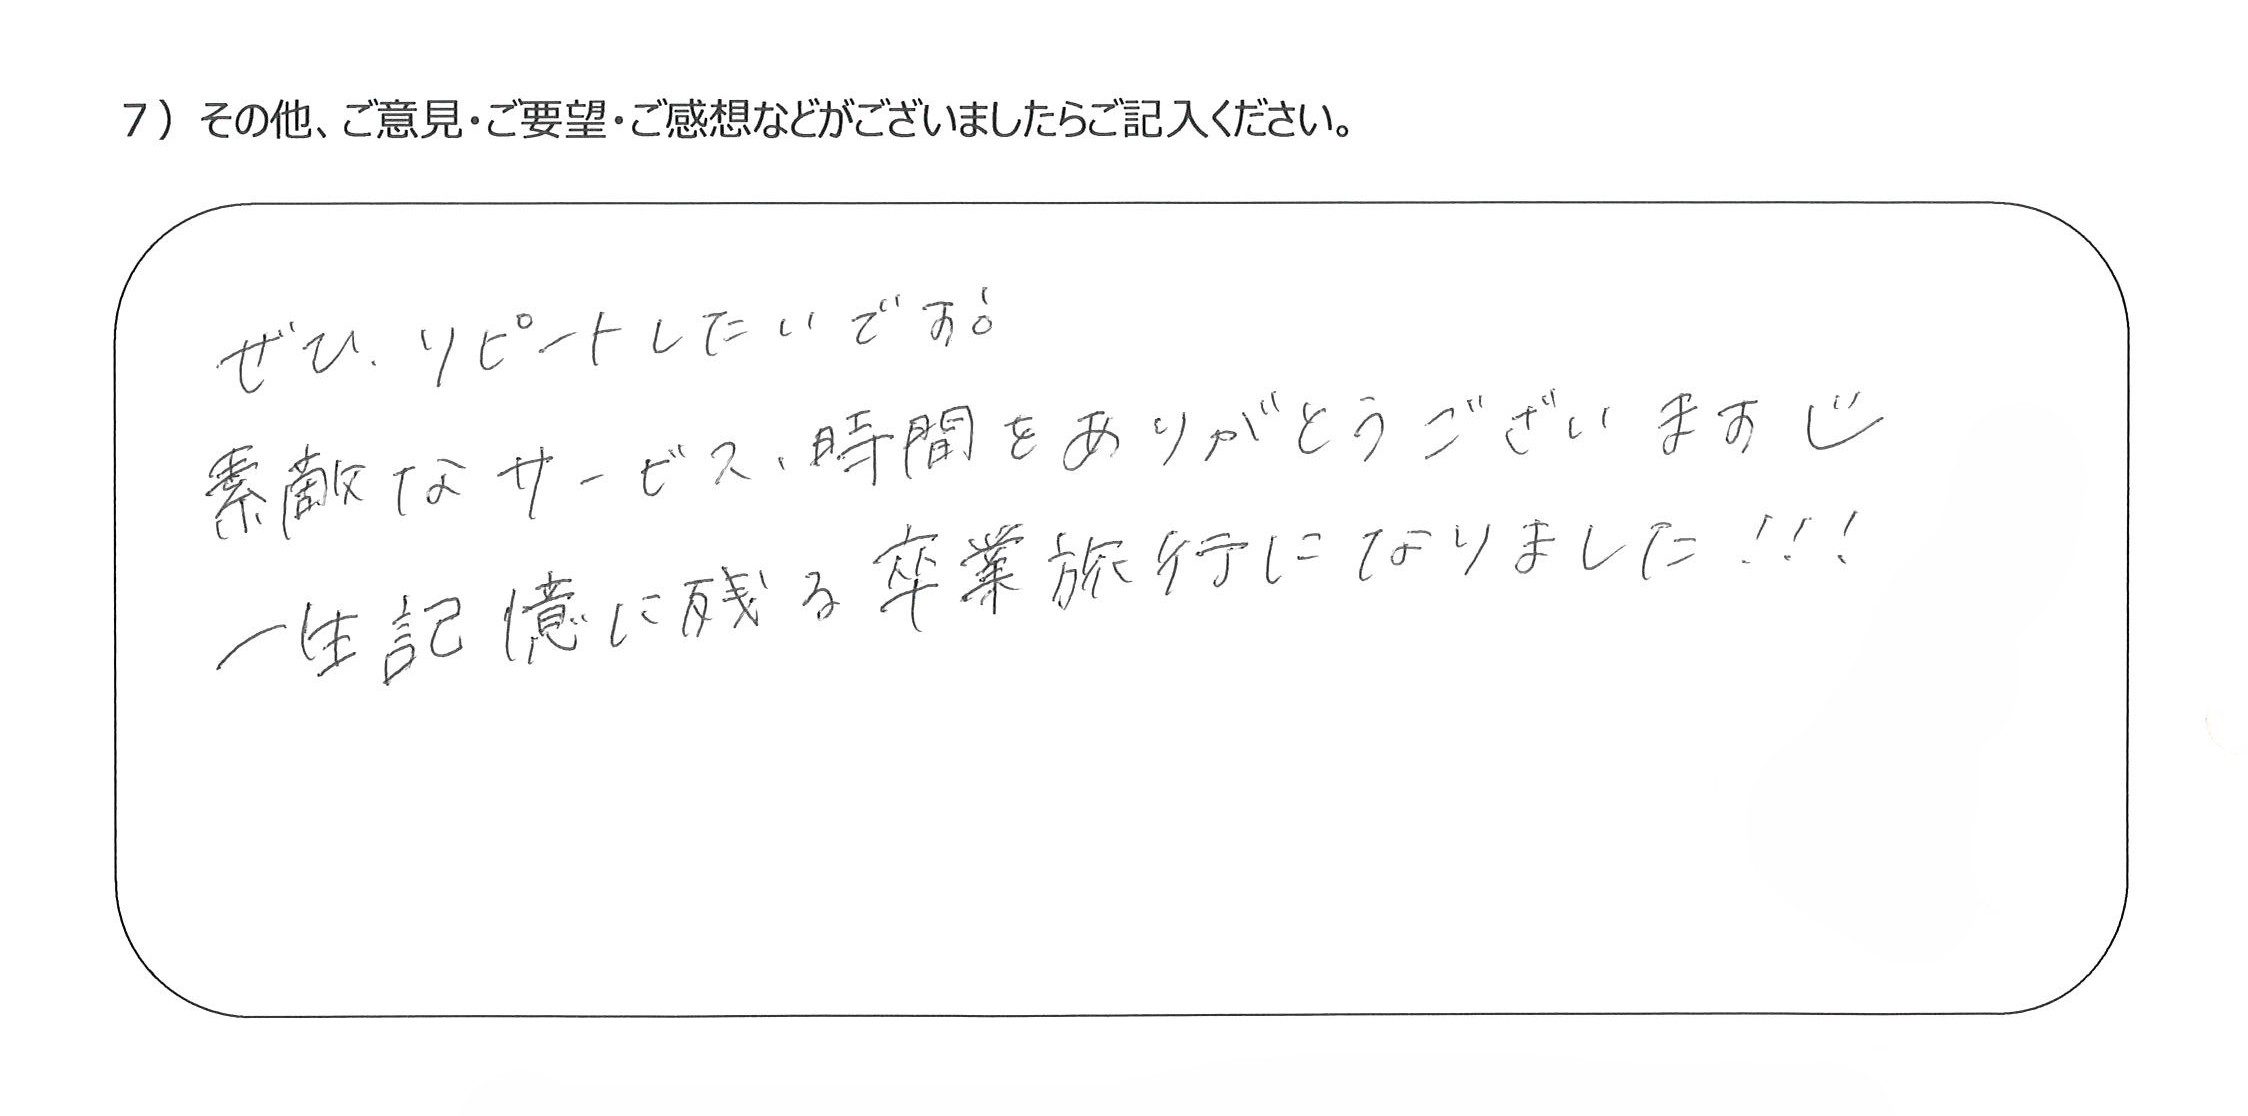 7）その他、ご意見・ご要望・ご感想などがございましたらご記入ください。
ぜひ、リピートしたいです!
素敵なサービス、時間をありがとうございます
一生記憶に残る卒業旅行になりました!!!